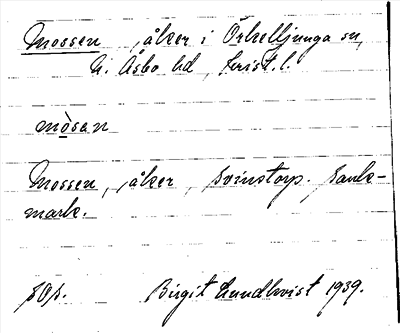 Mossen, åker i Örkelljunga sn,
N. Åsbo hd, Krist. l.
mòsan
Mossen, åker, Svinstorp. Sank-
mark.
SOp. Birgit Lundkvist 1939.